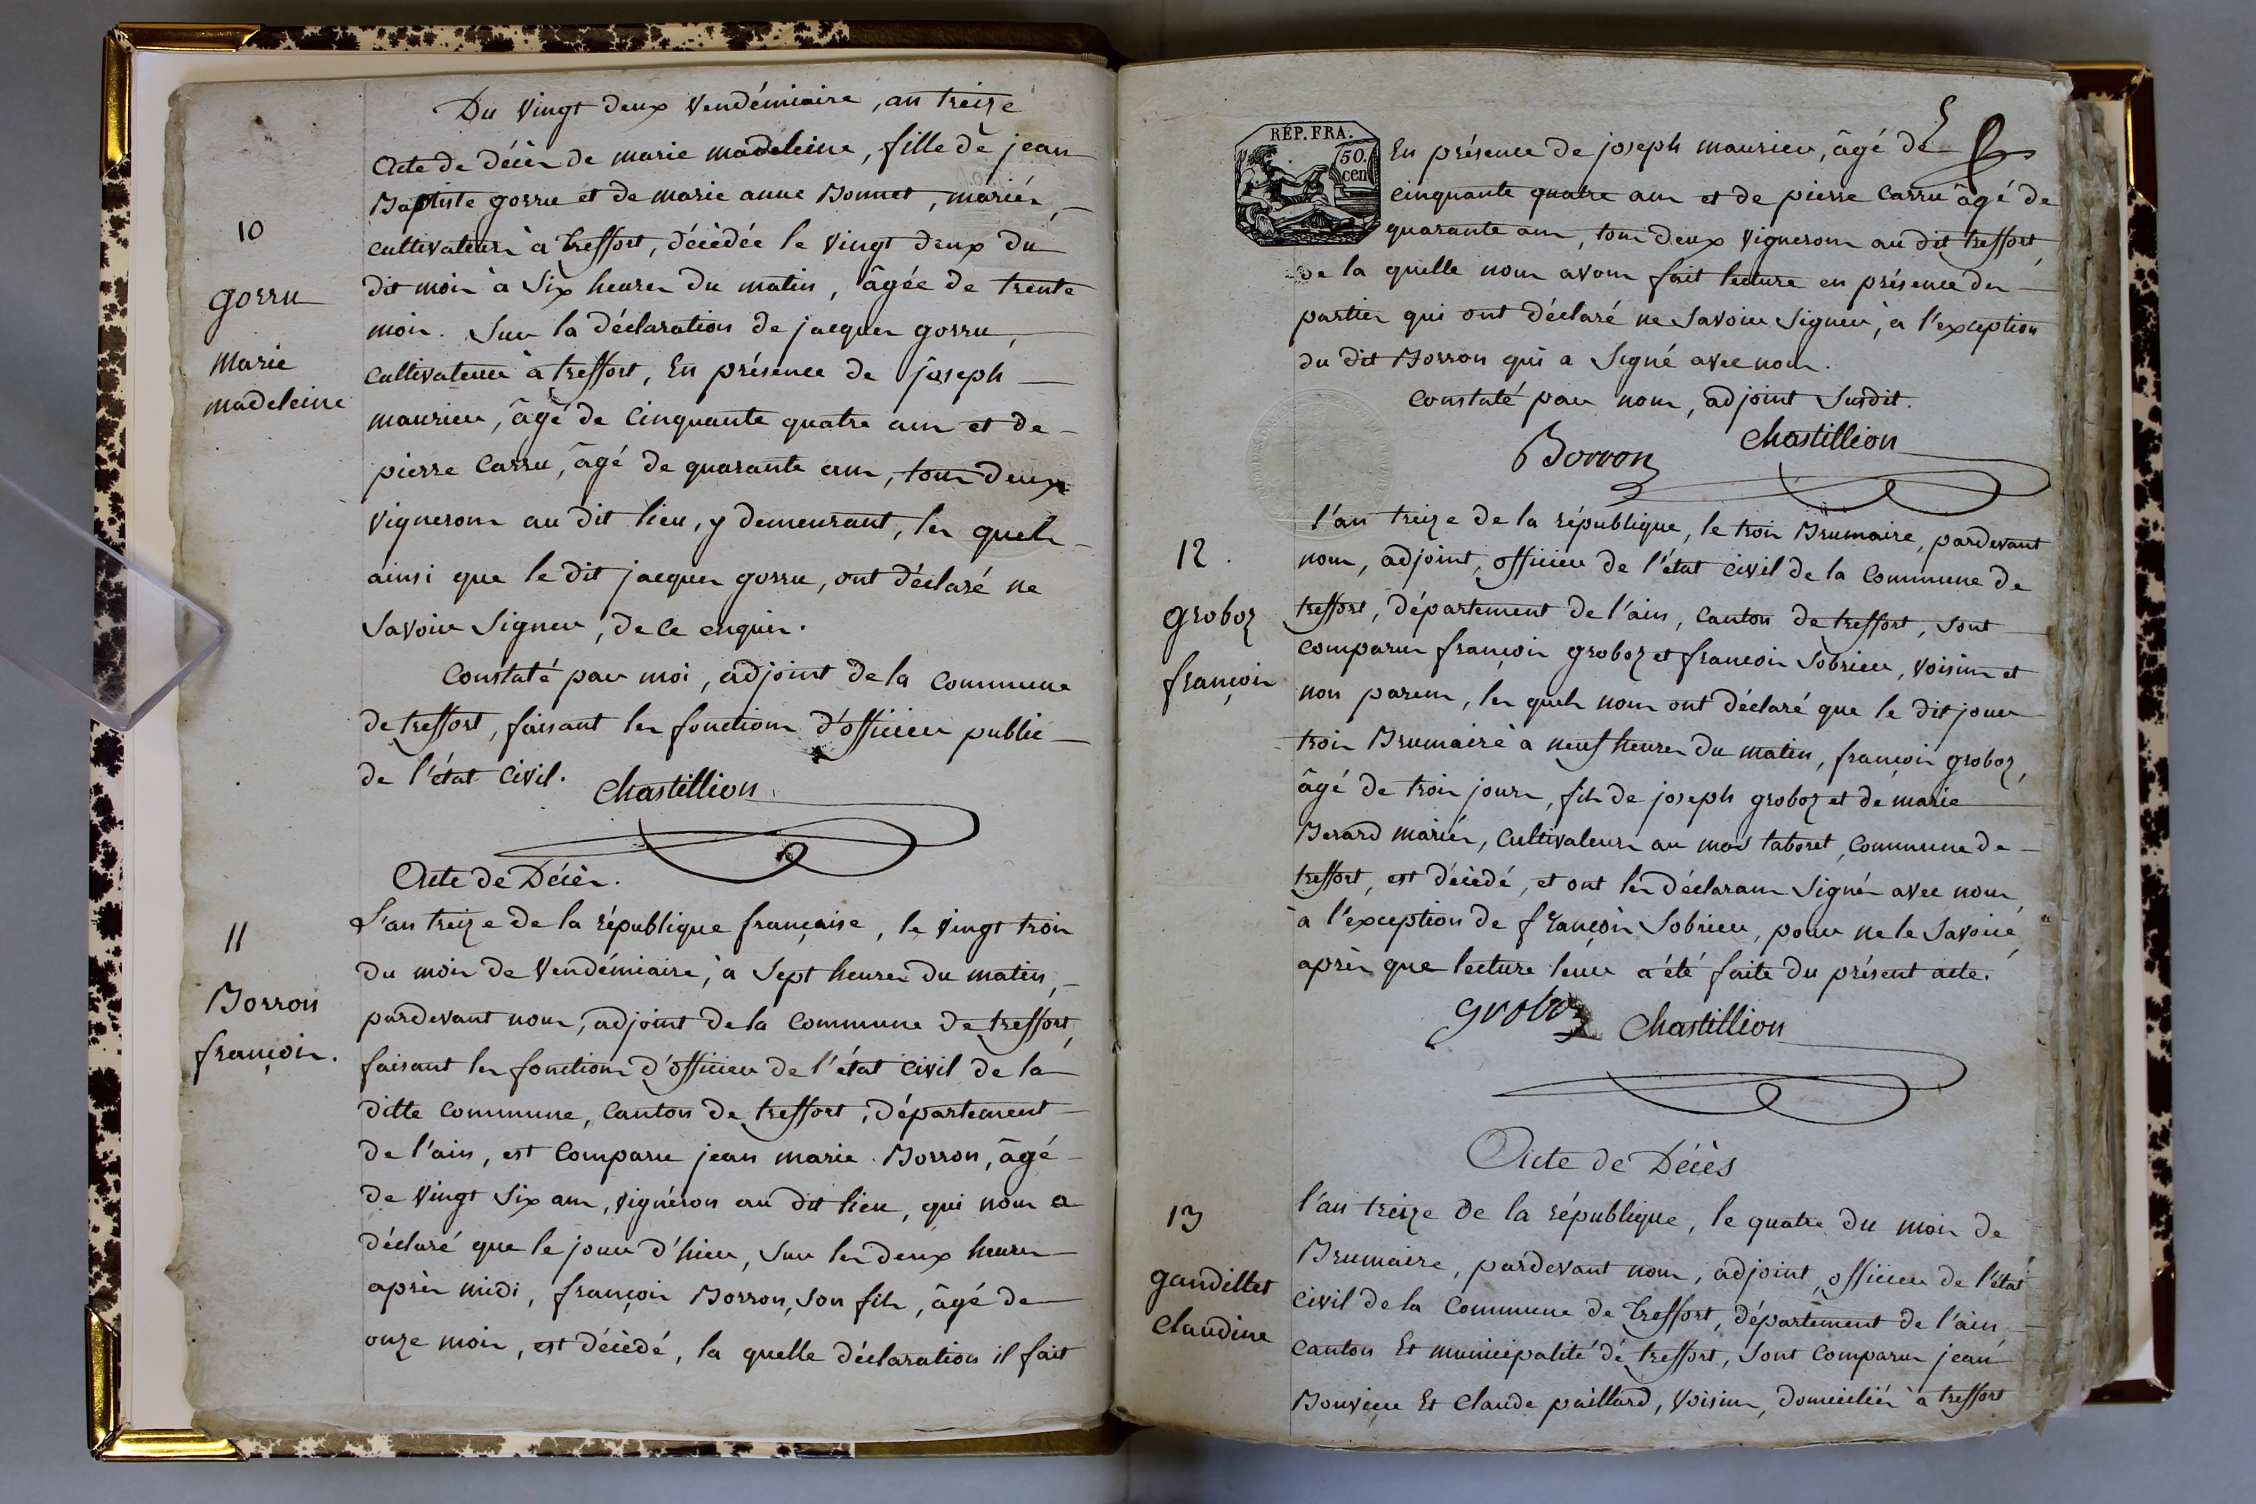 Du vingt deux vendémiaire, an treize
10
Acte de décès de marie madeleine, fille de jean
Baptiste gorru et de marie anne Bonnet, mariés,
cultivateurs à treffort, décédée le vingt deux du
gorru
marie
madeleine
dit mois à six heures du matin, âgée de trente
mois. Sur la déclaration de jacques gorru,
cultivateur à treffort, En présence de joseph
maurier, âgé de cinquante quatre ans et de
pierre carru, âgé de quarante ans, tous deux
vignerons au dit lieu, y demeurant, les quels
ainsi que le dit jacques gorru, ont déclaré ne
savoir signer, de ce enquis.
Constaté par moi, adjoint de la commune
de treffort, faisant les fonctions d'officier public
de l'état civil.
Chastillion
Acte de Décès.
11
Borron
françois.
L'an treize de la république française, le vingt trois
du mois de vendémiaire, à sept heures du matin,
pardevant nous, adjoint de la commune de treffort,
faisant les fonctions d'officier de l'état civil de la
ditte commune, canton de treffort, département
de l'ain, est comparu jean marie Borron, âgé
de vingt six ans, vigneron au dit lieu, qui nous a
déclaré que le jour d'hier, sur les deux heures
après midi, françois Borron, son fils, âgé de
onze mois, est décédé, la quelle déclaration il fait
RÉP. FRA.
50.
cen
En présence de joseph maurier, âgé de
cinquante quatre ans et de pierre carru âgé de
quarante ans, tous deux vignerons au dit treffort,
de la quelle nous avons fait lecture en présence des
parties qui ont déclaré ne savoir signer, à l'exception
du dit Borron qui a signé avec nous.
constaté par nous, adjoint susdit.
Borron
Chastillion
12.
groboz
françois
l'an treize de la république, le trois Brumaire, pardevant
nous, adjoint, officier de l'état civil de la commune de
treffort, département de l'ain, canton de treffort, sont
comparus françois groboz et françois sobrier, voisins et
non parens, les quels nous ont déclaré que le dit jour
trois Brumaire à neuf heures du matin, françois groboz,
âgé de trois jours, fils de joseph groboz et de marie
Berard mariés, cultivateurs au mas taboret, commune de
treffort, est décédé, et ont les déclarans signés avec nous
à l'exception de françois sobrier, pour ne le savoir,
après que lecture leur a été faite du présent acte.
groboz
Chastillion
Acte de Décès
13
gaudillet
claudine
l'an treize de la république, le quatre du mois de
Brumaire, pardevant nous, adjoint, officier de l'état
civil de la commune de treffort, département de l'ain,
canton Et municipalité de treffort, sont comparus jean
Bouvier Et claude paillard, voisins, domiciliés à treffort